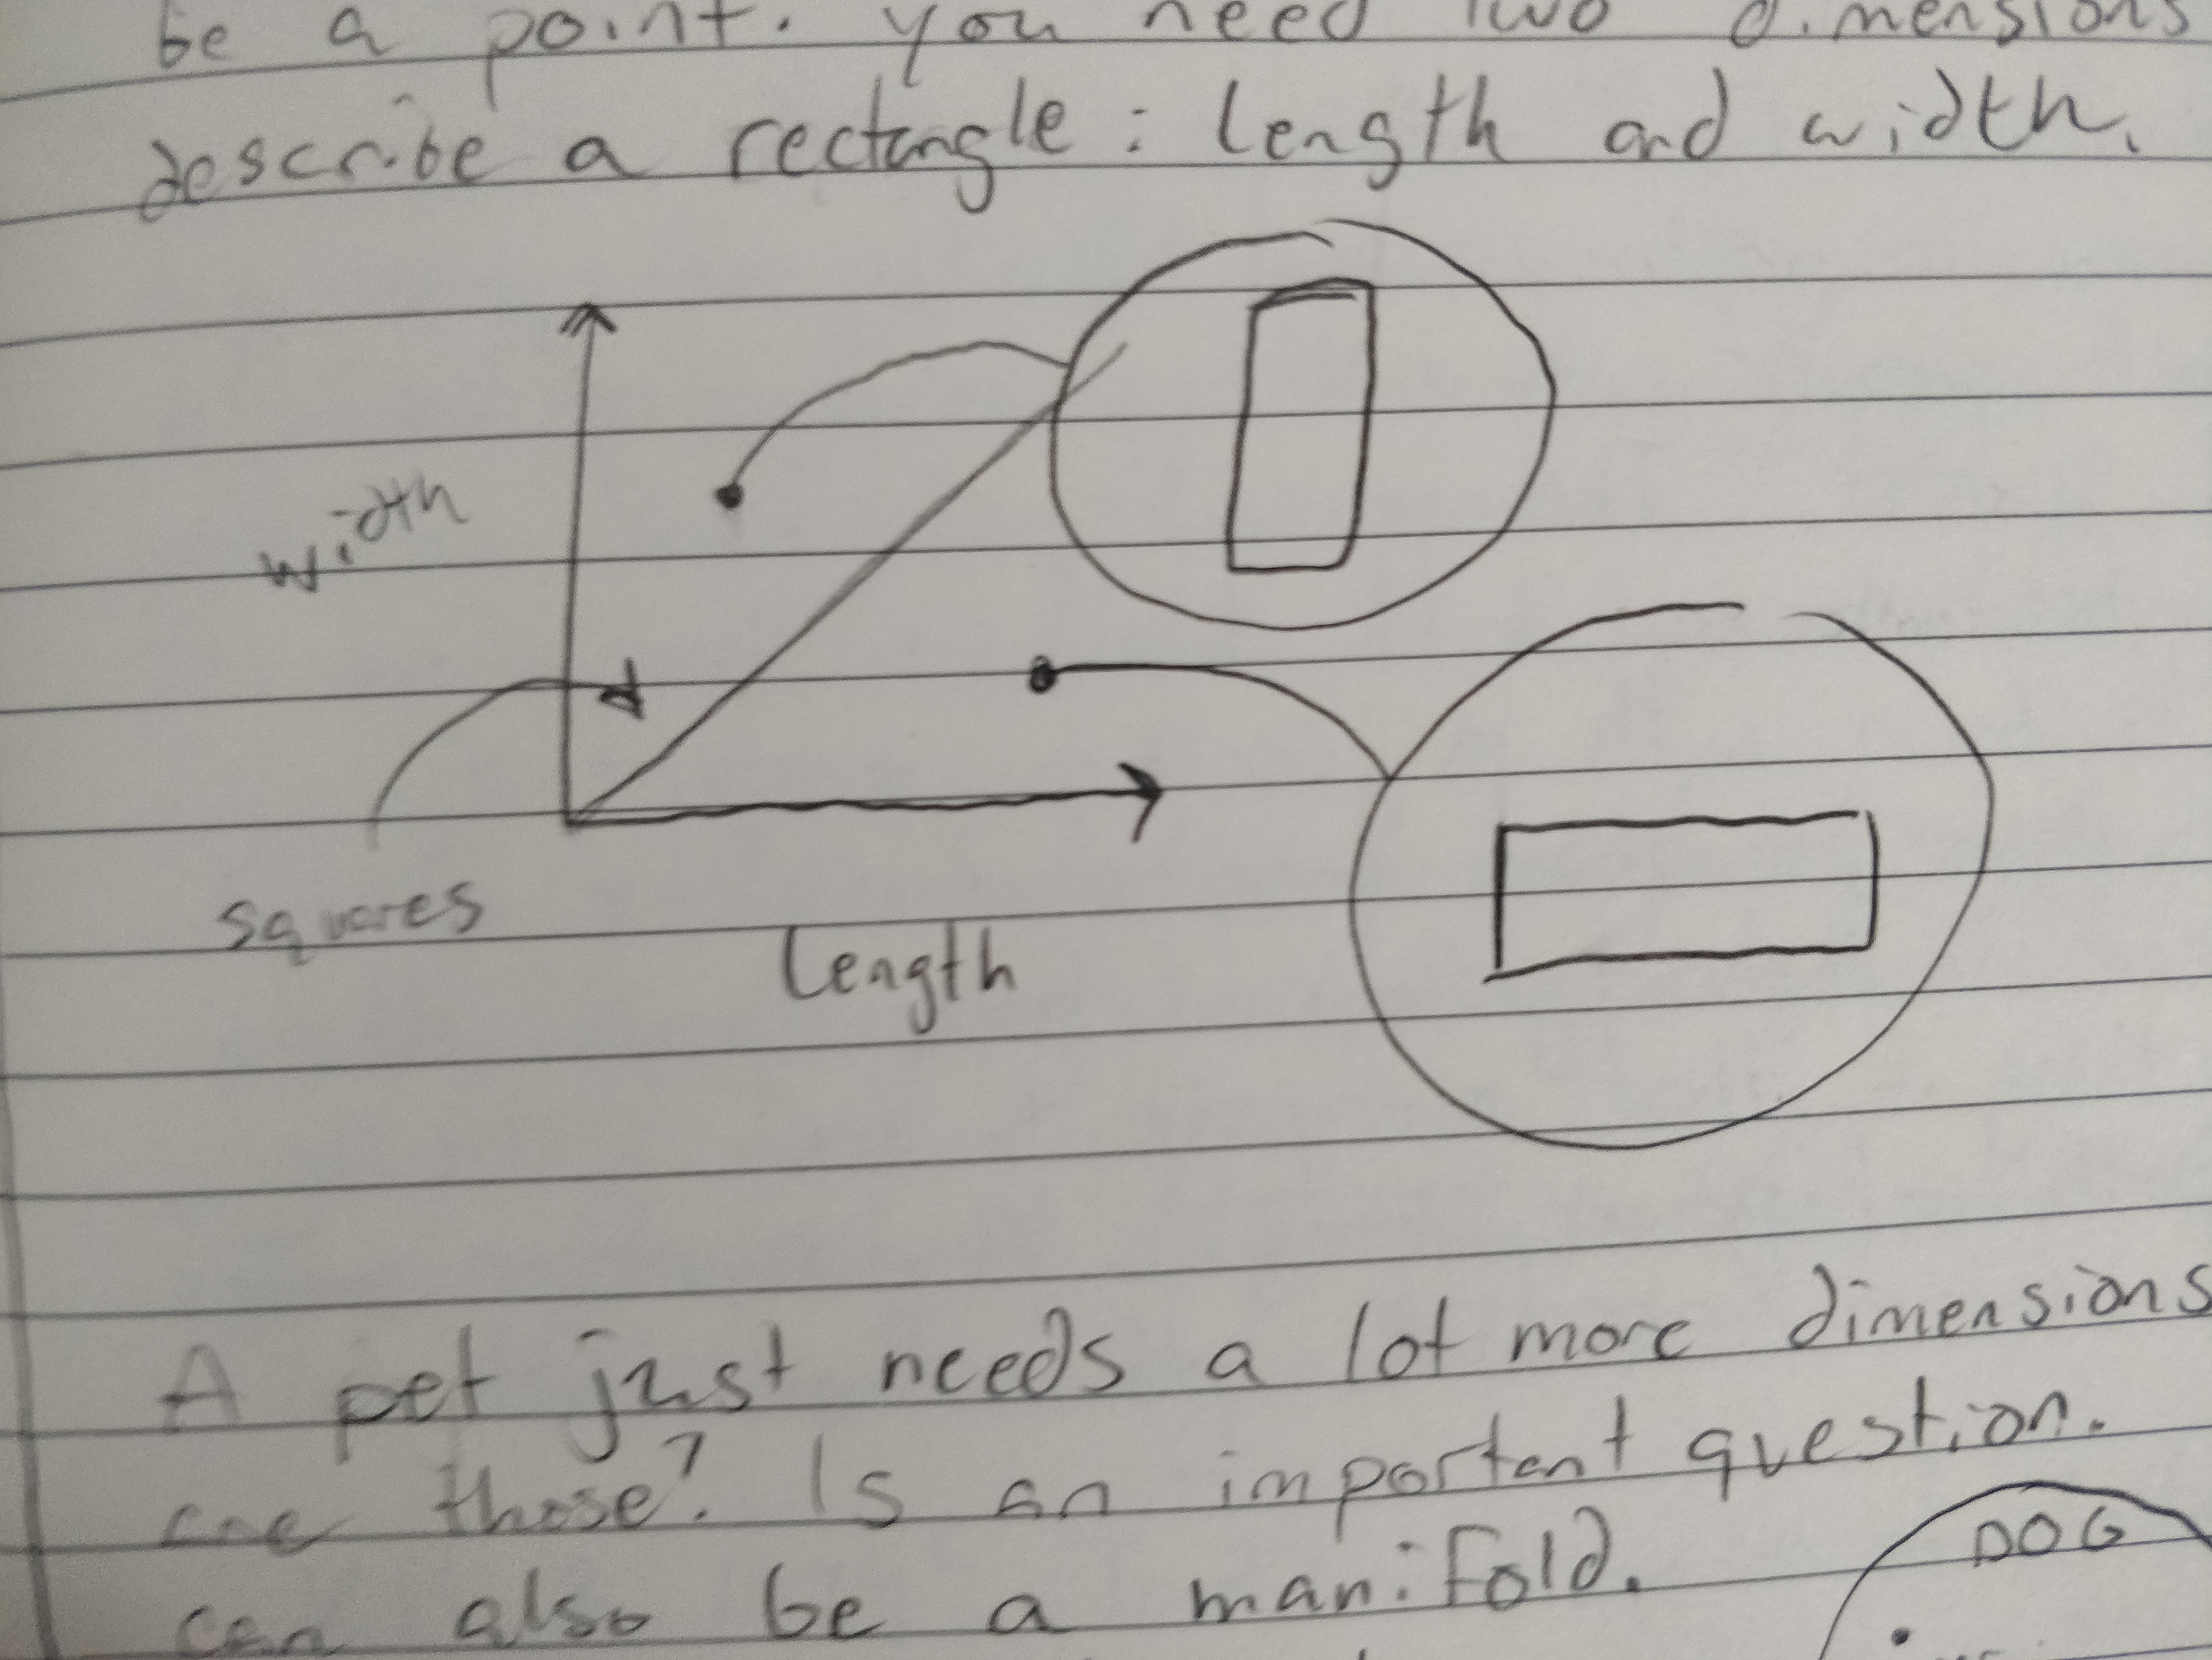 be a point. you need two dimensions
describe a rectangle: length and width.
width
squares
length
A pet just needs a lot more dimensions
are those? Is an important question.
can also be a manifold.
DOG